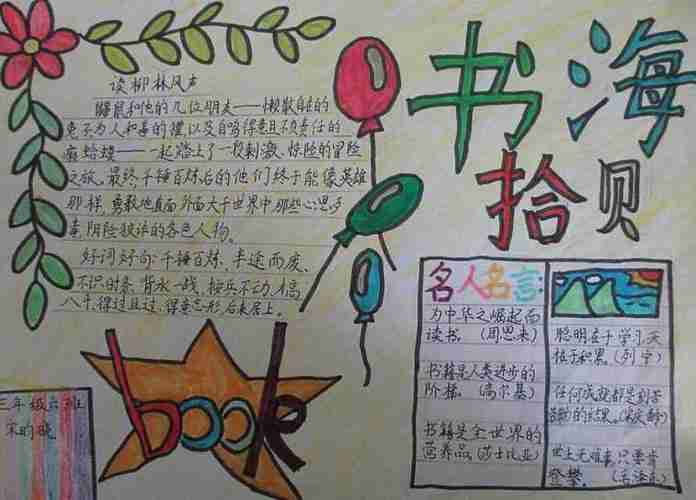 书海
拾贝
读柳林风声
鼹鼠和他的几位朋友——懒散自在的
兔子为人和善的獾以及自鸣得意且不负责任的
癞蛤蟆——一起踏上了一段刺激、惊险的冒险
之旅。最终,千锤百炼后的他们终于能像英雄
那样,勇敢地直面外面大千世界中那些心思歹
毒,阴险狡诈的各色人物。
好词好句:千锤百炼、半途而废、
不识时务、背水一战、按兵不动、才高
八斗、得过且过、得意忘形、后来居上。
book
三年级六班
宋昀晓
名人名言:
为中华之崛起而
读书。(周恩来)
书籍是人类进步的
阶梯。(高尔基)
书籍是全世界的
营养品。(莎士比亚)
聪明在于学习,天
才在于积累。(列宁)
任何成就都是刻苦
劳动的结果。(宋庆龄)
世上无难事,只要肯
登攀。(毛泽东)